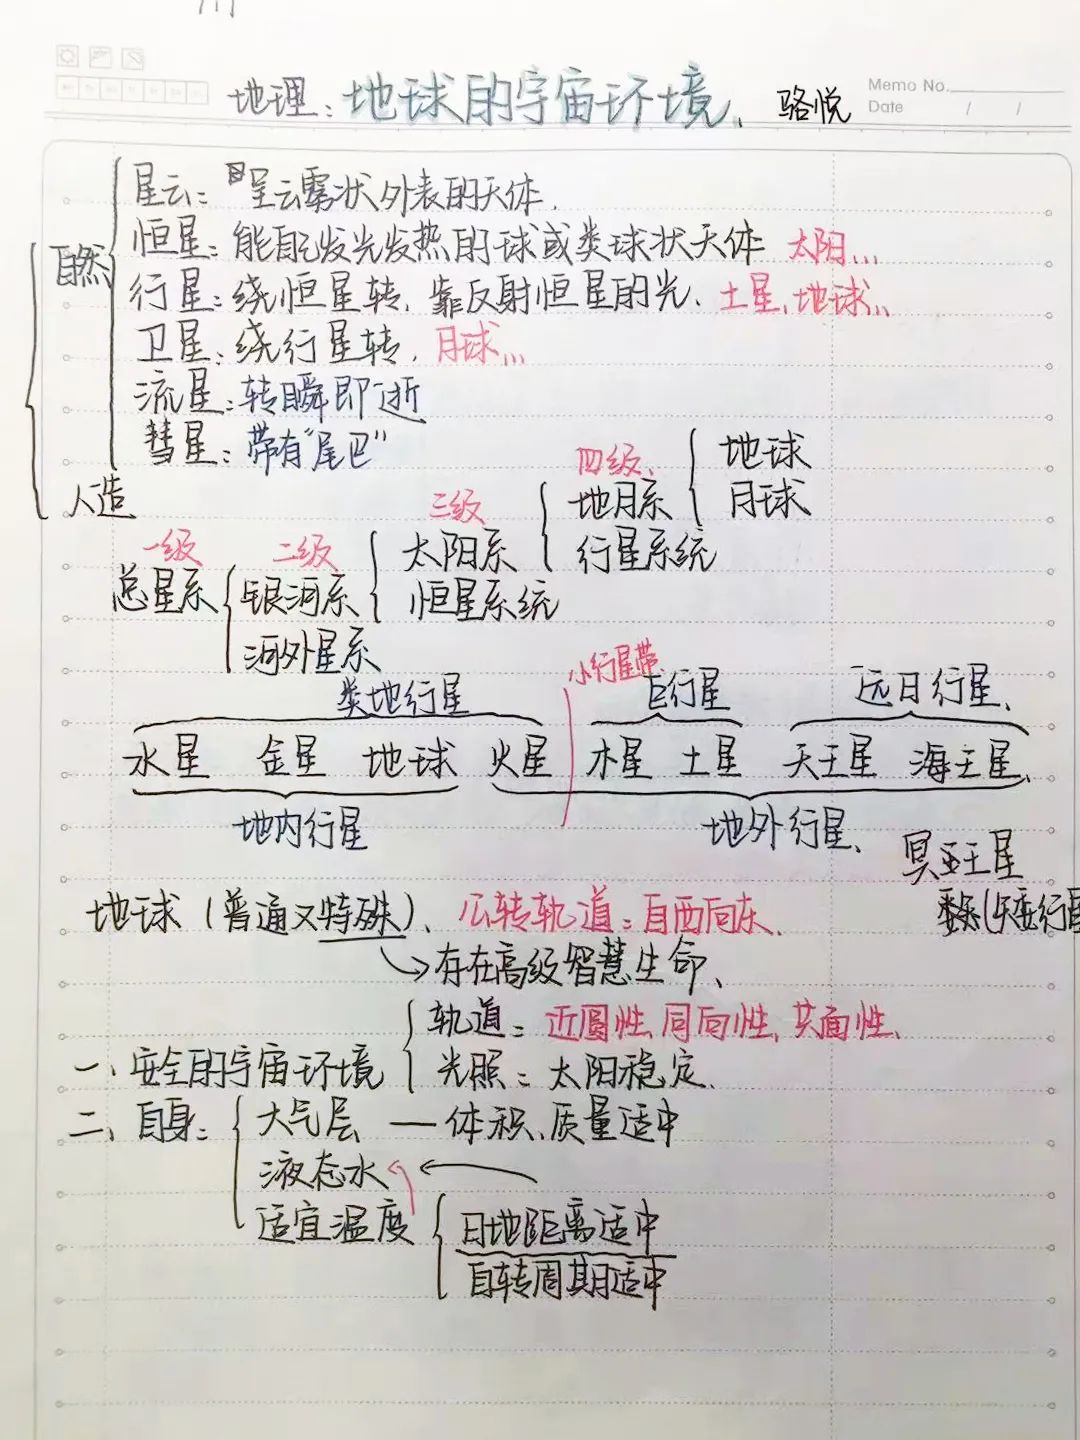 Memo No.
Date / /
地理：地球的宇宙环境、 骆悦
自然
星云：呈云雾状外表的天体.
恒星：能自己发光发热的球或类球状天体 太阳...
行星：绕恒星转，靠反射恒星的光、土星、地球...
卫星：绕行星转. 月球...
流星：转瞬即逝
彗星：带有“尾巴”
人造
一级 二级 三级 四级、
总星系 银河系 太阳系 地月系 地球
月球
行星系统
恒星系统
河外星系
小行星带
类地行星 巨行星 远日行星、
水星 金星 地球 火星 木星 土星 天王星 海王星、
地内行星 地外行星、
冥王星
地球（普通又特殊）、公转轨道：自西向东.
→存在高级智慧生命、
轨道：近圆性、同向性、共面性.
一、安全的宇宙环境
光照：太阳稳定.
二、自身：大气层 — 体积、质量适中
液态水
适宜温度 日地距离适中
自转周期适中